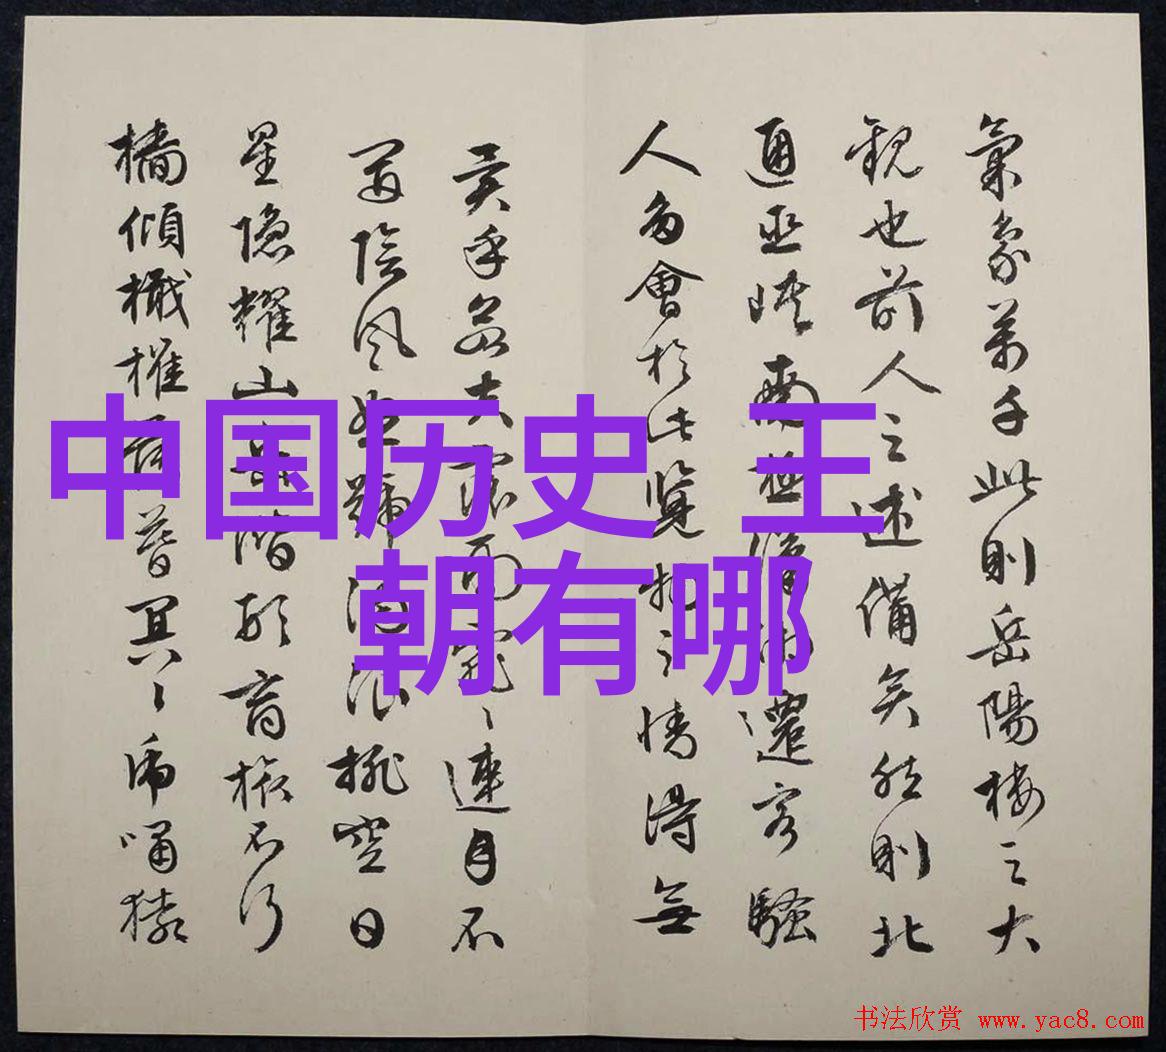 氣象萬千此則岳陽樓之大
觀也前人之述備矣然則北
通巫峽南極瀟湘遷客騷
人多會於此覽物之情得無
異乎若夫霪雨霏〻連月不
開陰風怒號濁浪排空日
星隱耀山岳潛形商旅不行
檣傾檝摧薄暮冥〻虎嘯猿
中国历史 王
朝有哪
书法欣赏 www.yac8.com